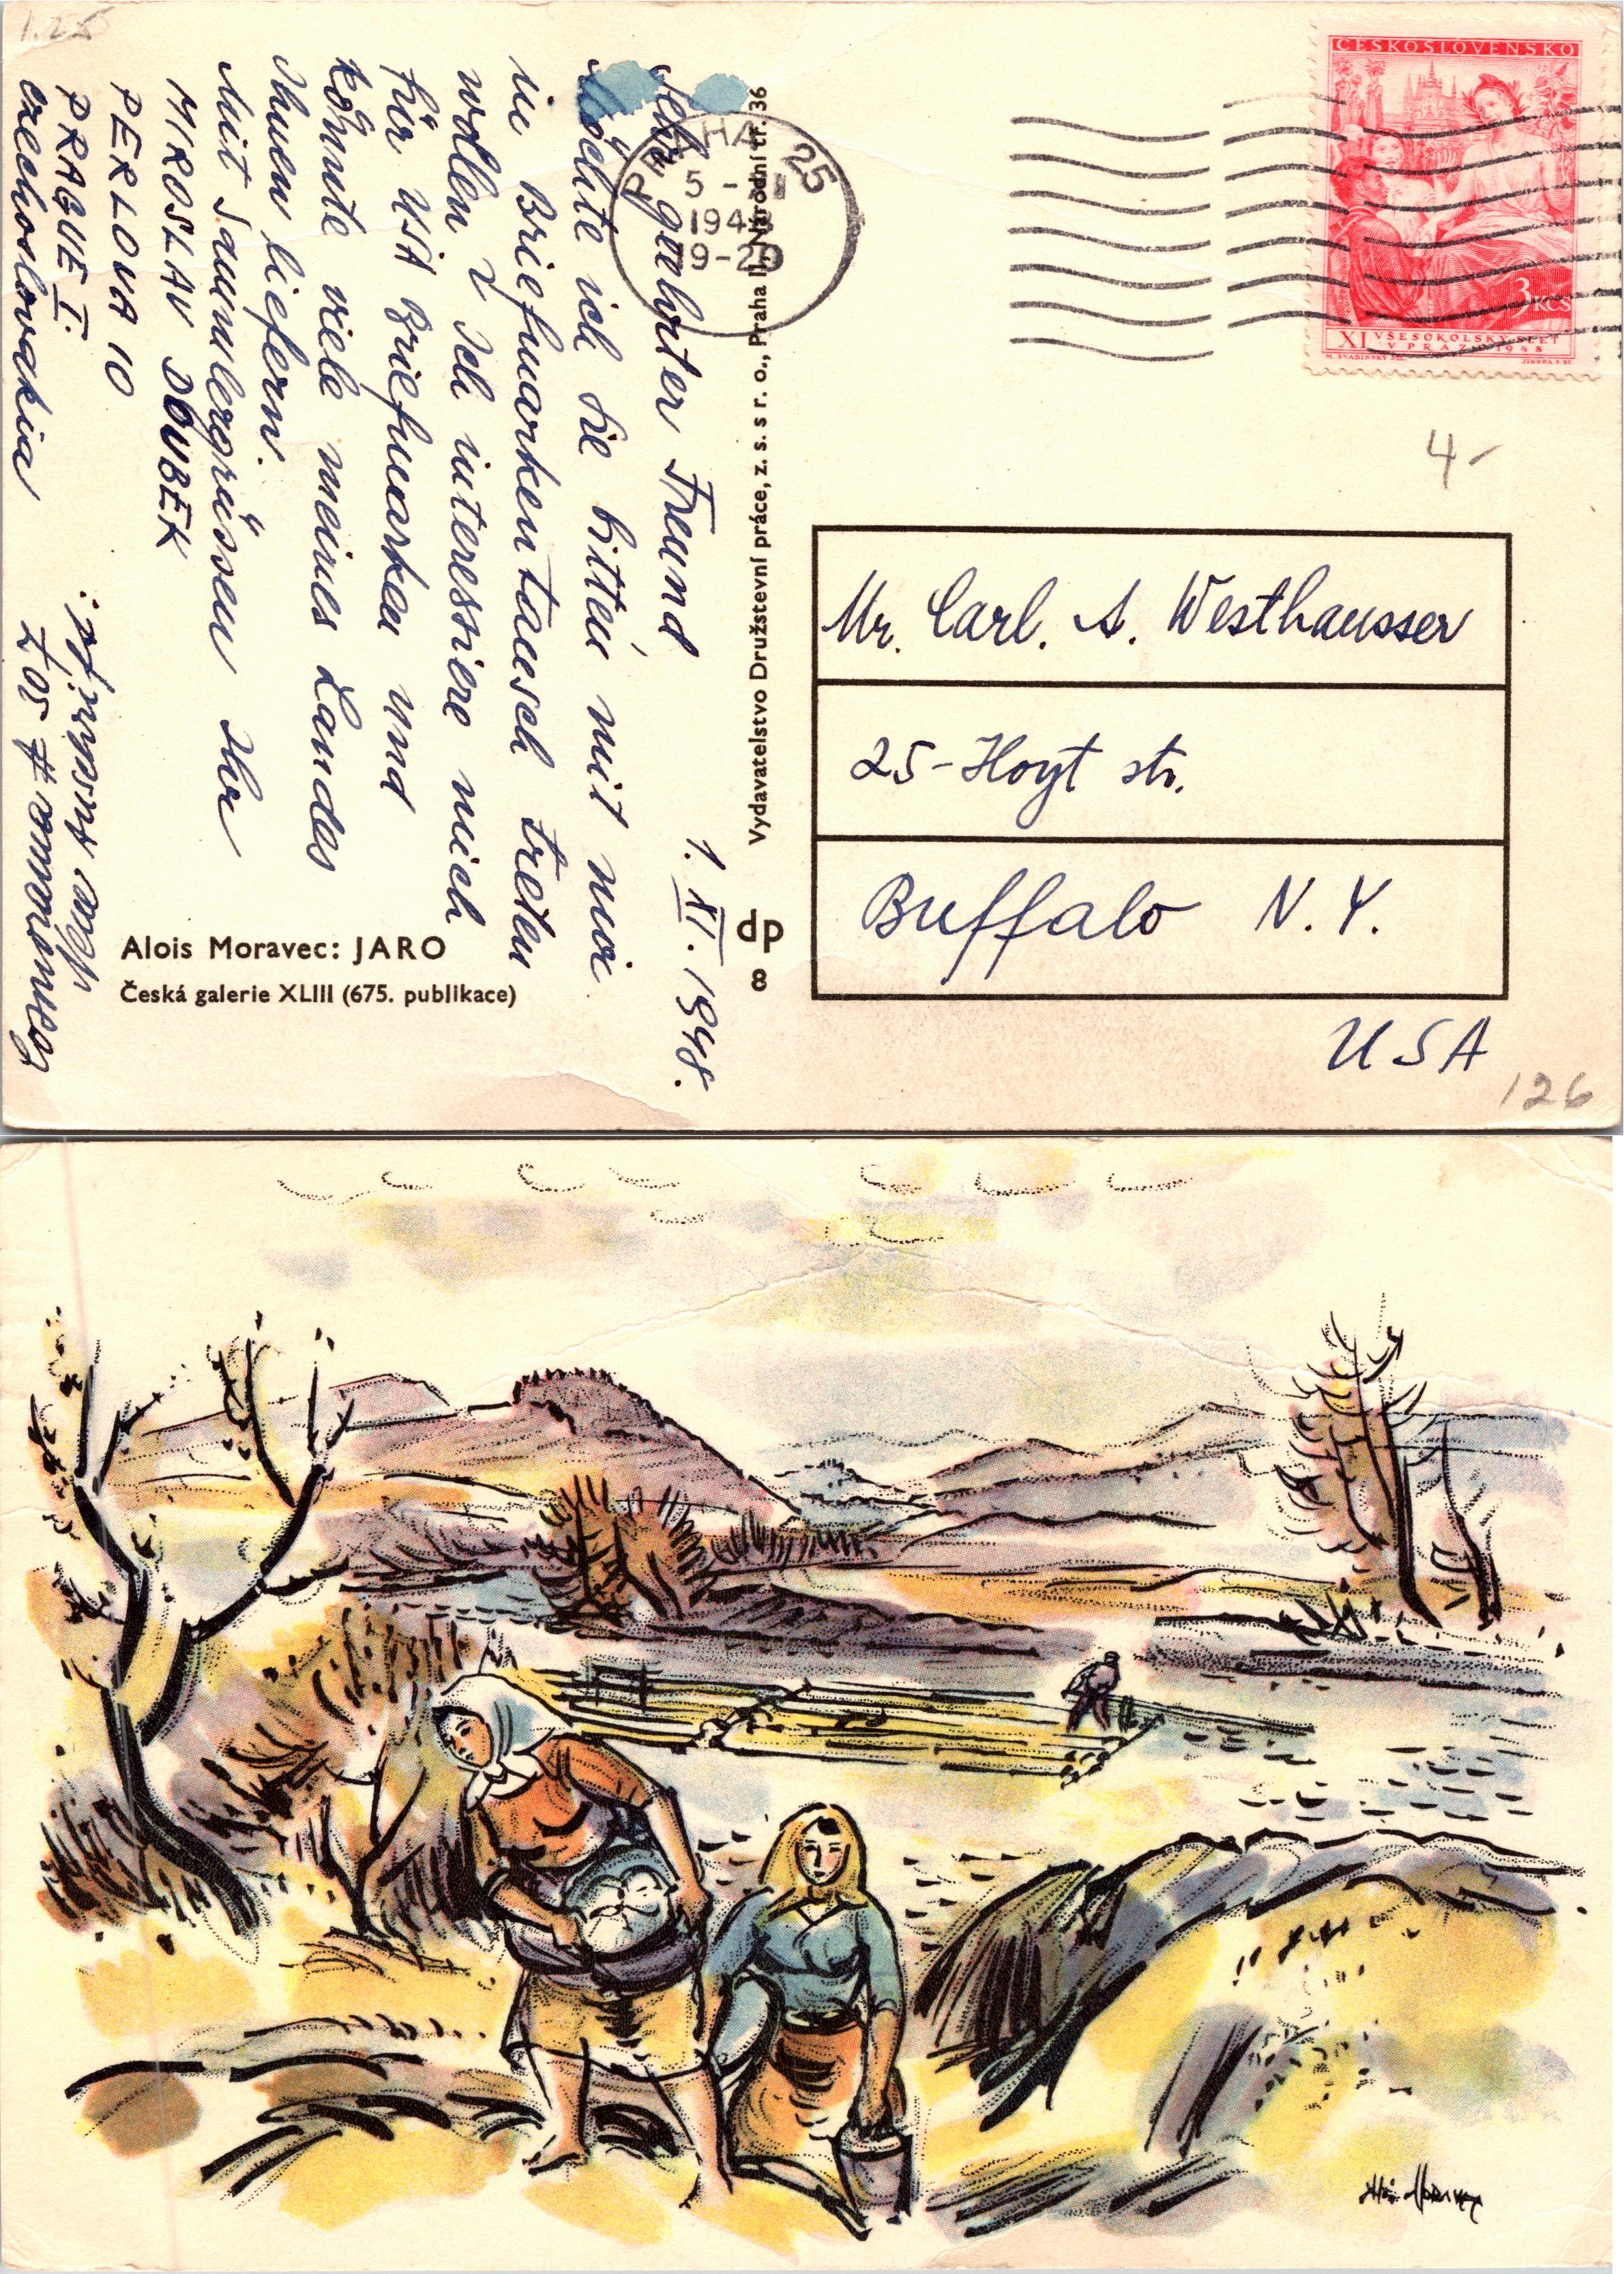 1.25
1. XI. 1948.
Sehr geehrter Freund
Möchte ich Sie bitten mit mir
in Briefmarkentausch treten
wollen? Ich interessiere mich
für USA Briefmarken und
könnte viele meines Landes
Ihnen liefern.
Mit Sammlergrüssen Ihr
MIROSLAV DOUBEK
PERLOVA 10
PRAGUE I.
czechoslovakia
Alois Moravec: JARO
Česká galerie XLIII (675. publikace)
Vydavatelstvo Družstevní práce, z. s. s r. o., Praha II, Národní tř. 36
dp
8
PRAHA 25
5 -
194
19-20
ČESKOSLOVENSKO
3 KČS
XI VŠESOKOLSKÝ SLET
V PRAZE 1948
M. ŠVABINSKÝ DEL.
4-
Mr. Carl. A. Westhausser
25-Hoyt str.
Buffalo N.Y.
USA
126